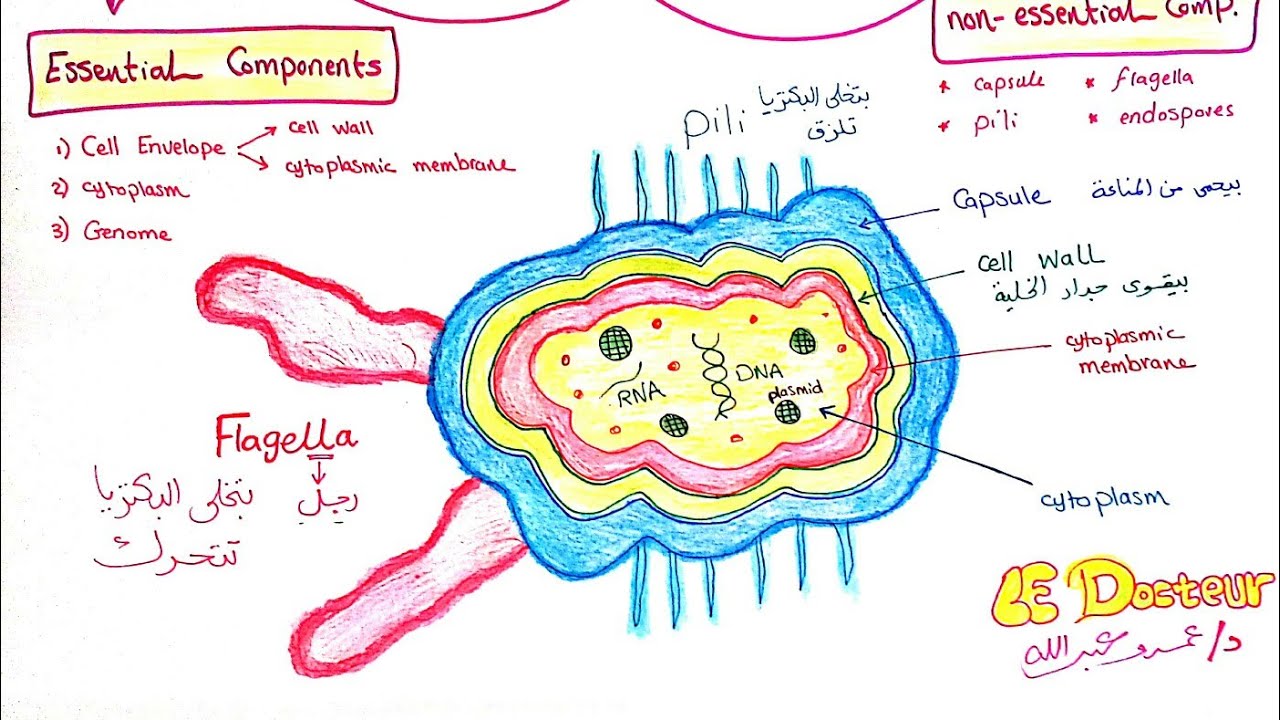 Essential Components
1) Cell Envelope
cell wall
cytoplasmic membrane
2) cytoplasm
3) Genome
non-essential Comp.
* capsule * flagella
* pili * endospores
pili بتخلى البكتريا
تلزق
Capsule بيحمى من المناعة
cell wall
بيقوى جدار الخلية
cytoplasmic
membrane
RNA
DNA
plasmid
cytoplasm
Flagella
رجل بتخلى البكتريا
تتحرك
LE Docteur
د/ عمرو عبدالله